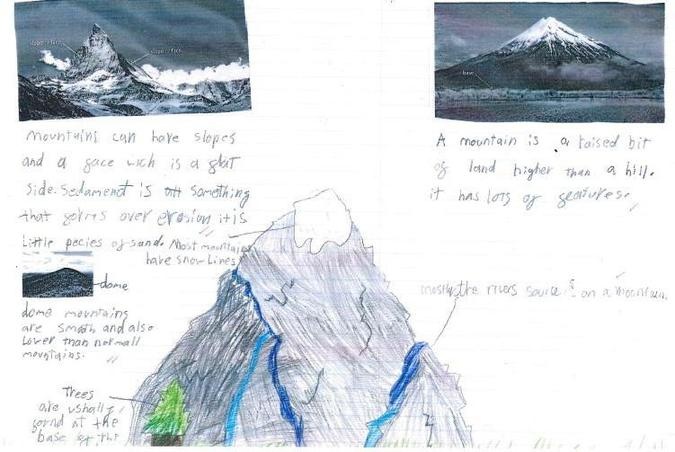 slope
slope face
mountains can have slopes
and a gace wich is a glat
side. Sedament is something
that gorms over erosion it is
Little pecies of sand.
Most mountains
have snow Lines.
dome
dome mountains
are smoth and also
Lower than normall
mountains.
Trees
are ushally
gornd at the
base of the
base
A mountain is a raised bit
of land higher than a hill.
it has lots of geatures.
mostly the rivers source is on a mountain.